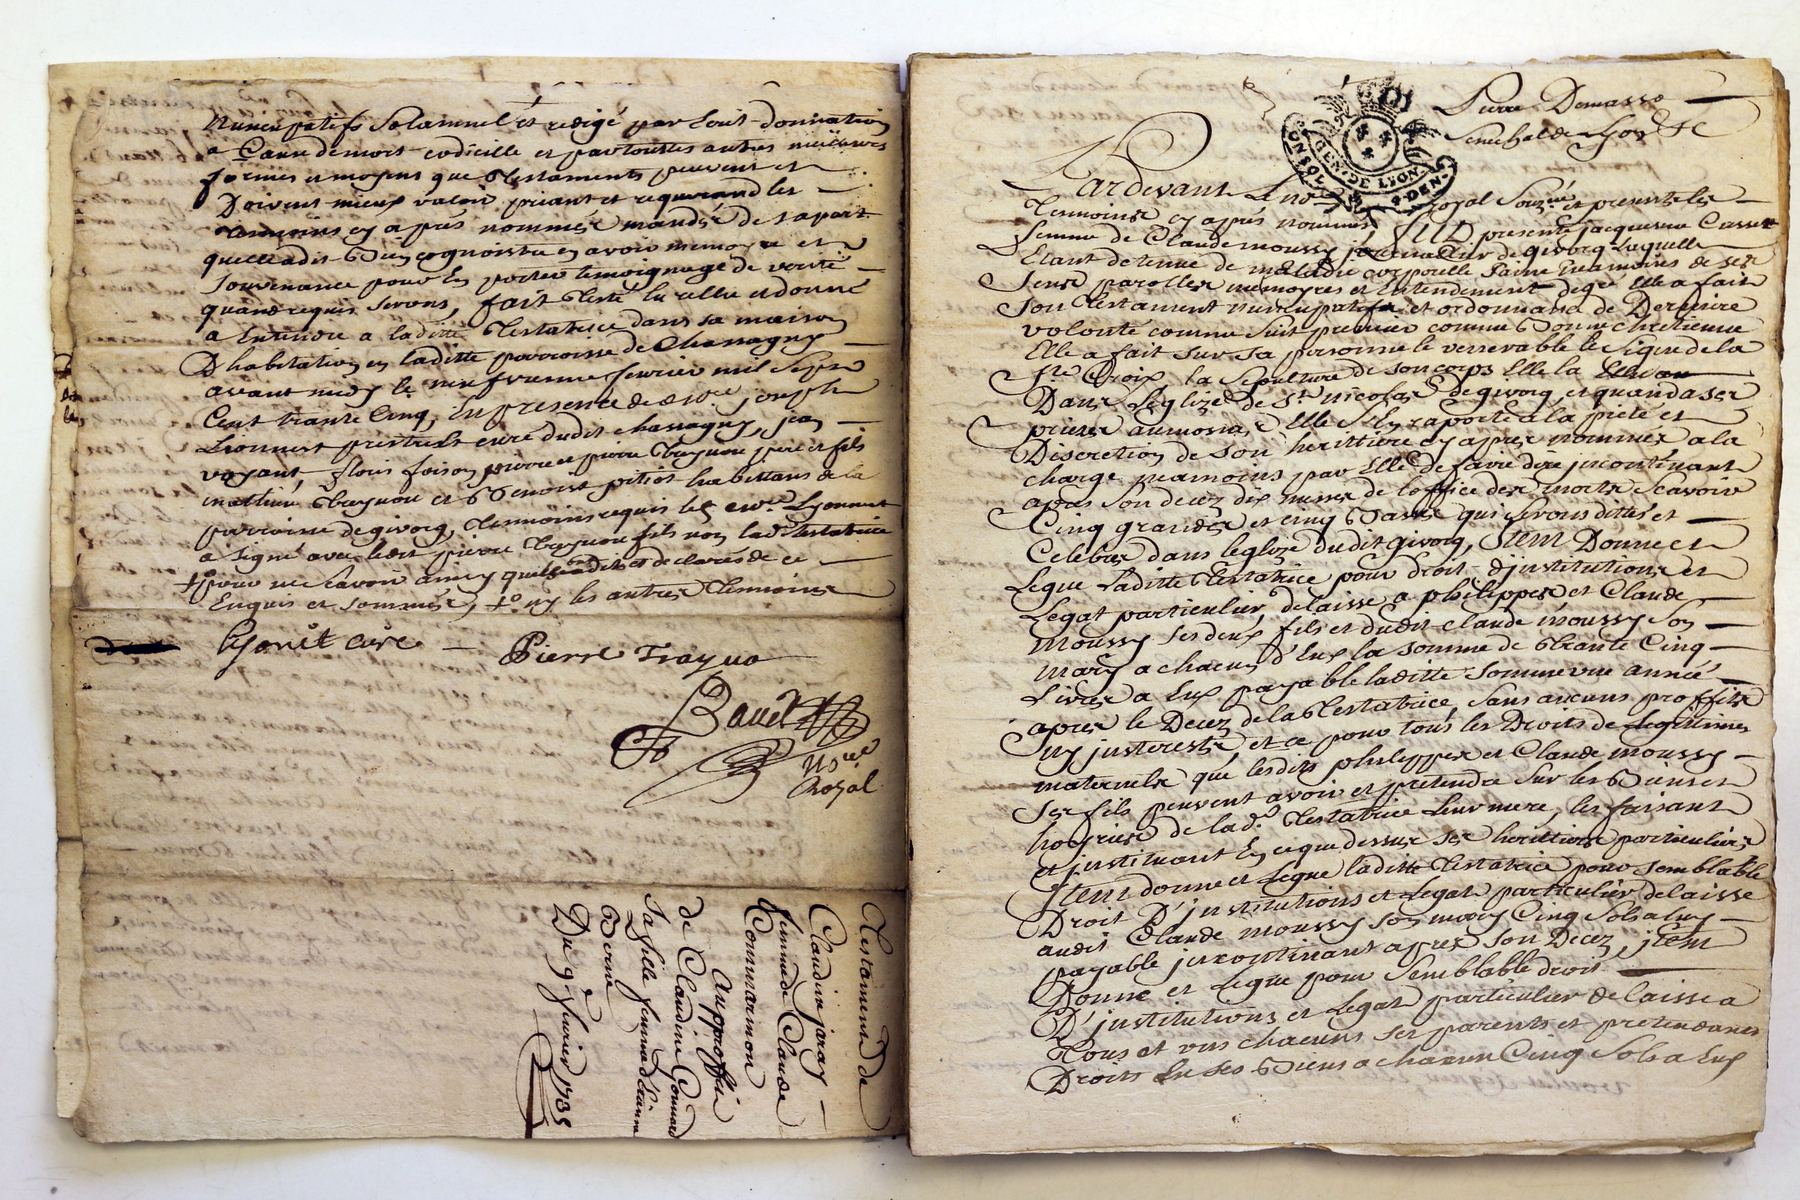 Nuncupatifs Solamnel et redigé par Écrit donnation
a Cause de mort codicille et par touttes autres meilleures
formes et moyens que Testaments peuvent et
Doivent mieux valoir priant et requerand les
temoins cy après nommés mandés de sa part
quelle a dit Bien cognoistre en avoir memoyre et
souvenance pour En porter temoignage de verité
quand requis serons, fait Testé lu relu et donné
a Entendre a laditte Testatrice dans sa maison
D'habitation en laditte parroisse de Chassagny
avant midy le neufvieme fevrier mil sept
Cent trante Cinq, En presence de joseph
Lionnest prestre et curé dudit chassagny, jean
voyant, pierre et pierre Traynon pere et fils
mathieu Trayuon et Benoist pitiot habittans de la
parroisse de givorg, temoins requis led. Lyonnest
a signé avec ledit pierre Trayuon fils non lad. testatrice
pour ne scavoir ainsy quels ont dit et declarés de ce
Enquis et sommés, ny les autres temoins
Lyonêt curé Pierre Trayuo
Bauet
No.re
Royal
Testament de
Claudine jaray
femme de Claude
Commarmon
Au proffit
de Claudine Commarmon
sa fille femme d'Etienne
Berne
Du 9e fevrier 1735
Pierre Demasso
Senechal de Lyon
GEN·DE LYON
Pardevant Le No.re Royal Soub.né et presents les
Temoins cy après nommés FUT presente jacquema Cassett
femme de Claude moussy journallier de givorg laquelle
Etant detenue de maladie corporelle saine neamoins de ses
sens parolles memoyres et Entendement de gré Elle a fait
son Testament nuncupatif et ordonnana de Derniere
volonté comme suit premier comme Bonne chretienne
Elle a fait sur sa personne le venerable Signe de la
Ste Croix la sepulture de son corps Elle la
Dans L'eglize de St nicolas de givorg, et quand a ses
prieres aumosnes Elle s'En raporte a la pieté et
Discretion de son herittiere cy après nommée a la
charge neamoins par Elle de faire dire jncontinant
apres son decez dix messes de l'office des morts scavoir
Cinq grandes et cinq Basses qui seront dittes et
Celebrés dans leglize dudit givorg, Jtem Donne et
Legue laditte Testatrice pour droit d'jnstitutions et
Legat particulier, delaisse a philippes et Claude
Moussy ses deux fils et dudit claude moussy son
mary a chacun d'Eux la somme de Trante Cinq
Livres a Eux payable laditte somme une année
apres le Decez de la Testatrice, sans aucuns proffits
ny jnterests, et ce pour tous les Droits de Legitimes
maternels que lesdits philippes et Claude moussy
ses fils peuvent avoir et pretendre sur les Biens et
hoyries de lad.e Testatrice Leur mere, les faisant
et jnstituant En ce que dessus ses herittiers particuliers
Jtem donne et Legue laditte Testatrice pour semblable
Droit D'jnstitutions et Legat particulier delaisse
audit Claude moussy son mary Cinq Sols a luy
payable jncontinant apres son Decez, jtem
Donne et Legue pour semblable droit
D'jnstitutions et Legat particulier delaisse a
Tous et uns chacuns ses parents et pretendants
Droits En ses Biens a chacun Cinq Sols a Eux